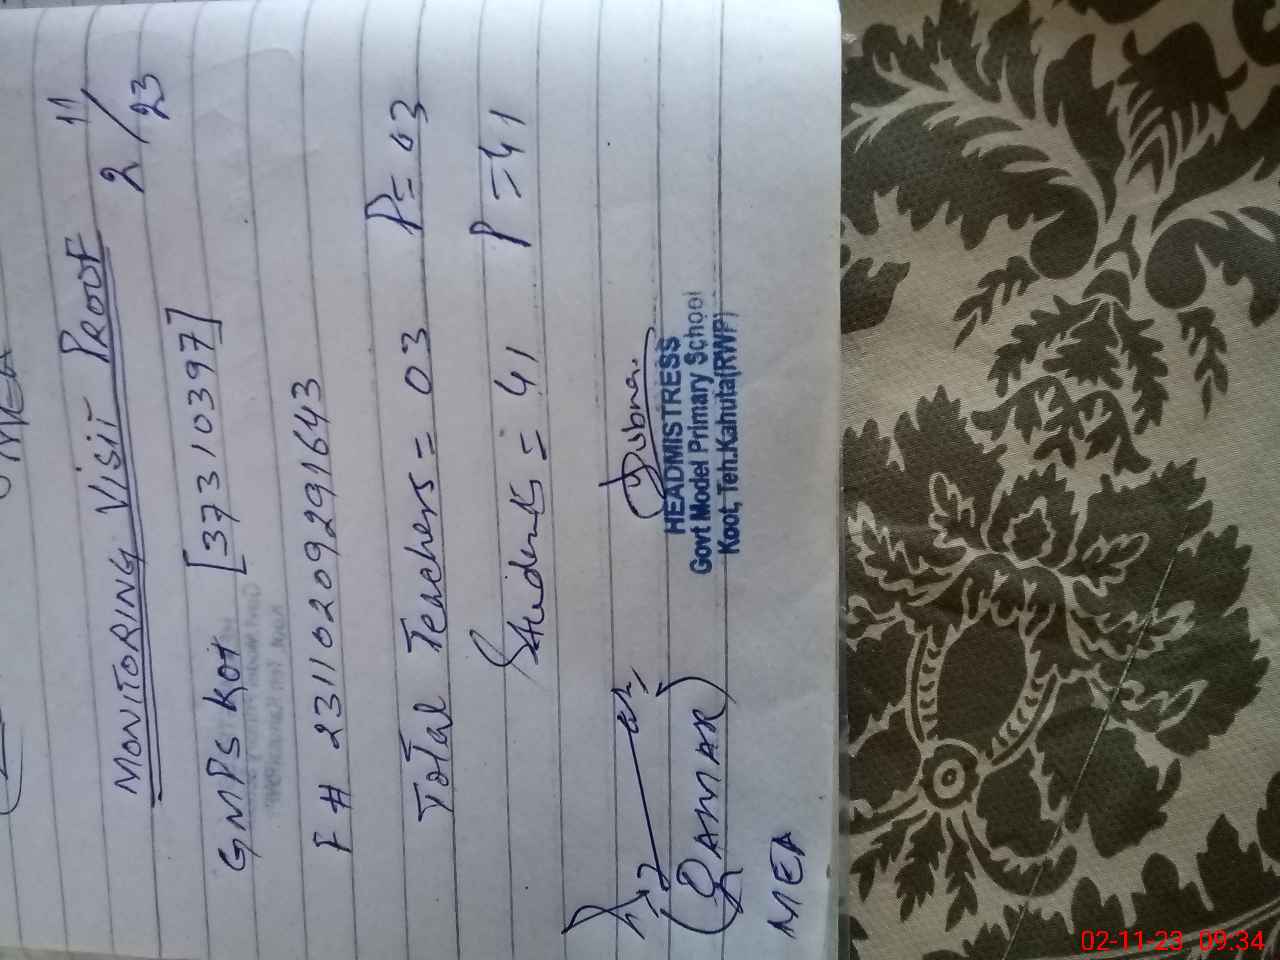 MEA
11
MONITORING VISIT PROOF 2/23
GMPS Kot [37310397]
F # 231102092291643
Total Teachers = 03 P = 03
Students = 41 P = 41
HEADMISTRESS
Govt Model Primary School
Koot, Teh.Kahuta(RWP)
(QAMAR)
MEA
02-11-23 09:34